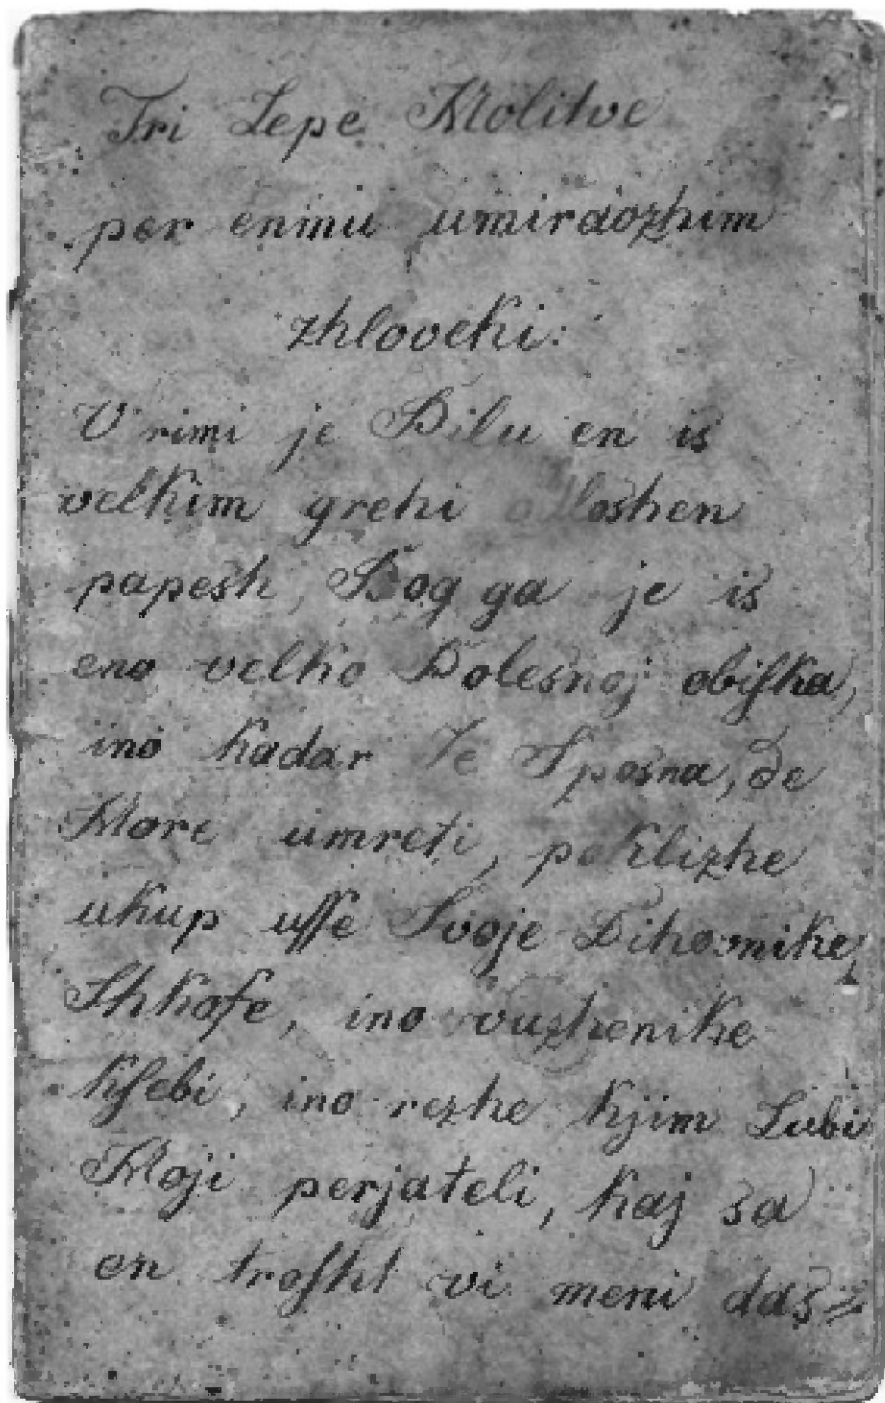 Tri Lepe Molitve
per enimu umiraozhim
zhloveki:
V rimi je Bilu en is
velkim grehi obloshen
papesh, Bog ga je is
eno velko Bolesnoj obiſka,
ino kadar Je Sposna, de
More umreti, poklizhe
ukup uſſe Svoje Dihovnike,
Shkofe, ino vuzhenike
kſebi, ino rezhe kjim Lubi
Moji perjateli, kaj sa
en troſht vi meni das=